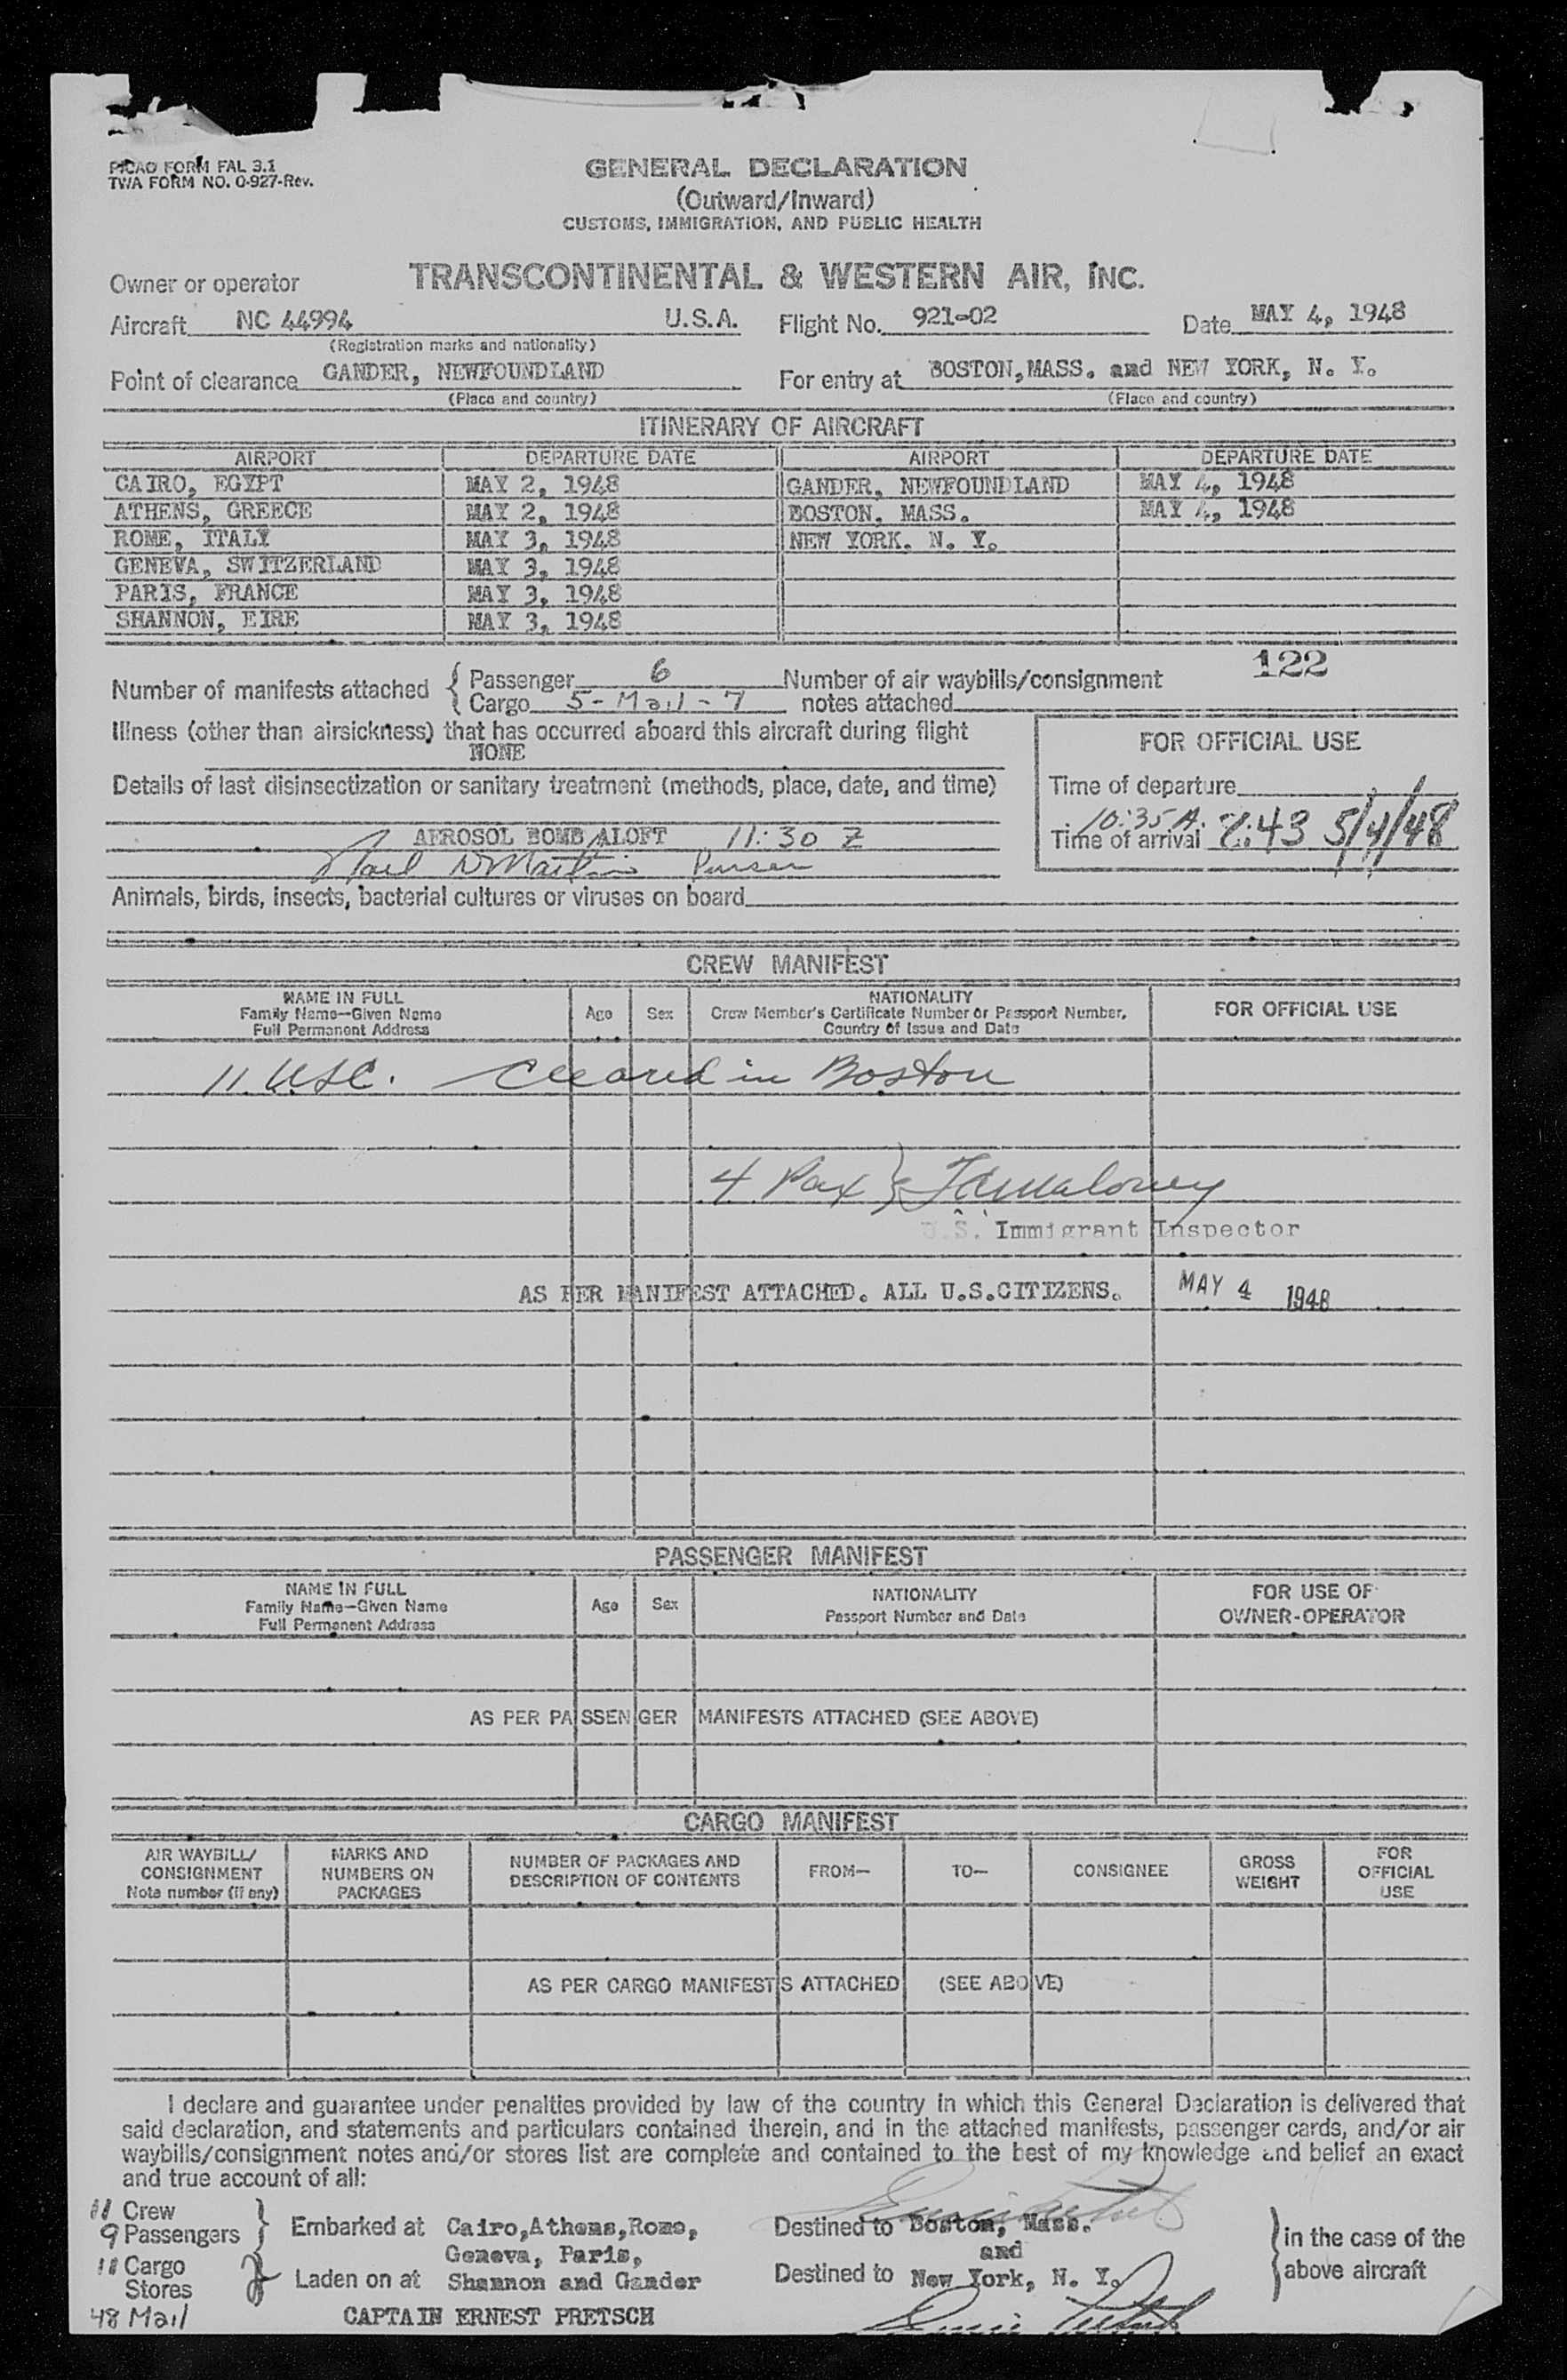 PICAO FORM FAL 3.1
TWA FORM NO. O-927-Rev.
GENERAL DECLARATION
(Outward/Inward)
CUSTOMS, IMMIGRATION, AND PUBLIC HEALTH
Owner or operator TRANSCONTINENTAL & WESTERN AIR, INC.
Aircraft NC 44994 U.S.A. Flight No. 921-02 Date MAY 4, 1948
(Registration marks and nationality)
Point of clearance GANDER, NEWFOUNDLAND For entry at BOSTON, MASS. and NEW YORK, N. Y.
(Place and country) (Place and country)
ITINERARY OF AIRCRAFT
AIRPORT DEPARTURE DATE AIRPORT DEPARTURE DATE
CAIRO, EGYPT MAY 2, 1948 GANDER, NEWFOUNDLAND MAY 4, 1948
ATHENS, GREECE MAY 2, 1948 BOSTON, MASS. MAY 4, 1948
ROME, ITALY MAY 3, 1948 NEW YORK. N. Y.
GENEVA, SWITZERLAND MAY 3, 1948
PARIS, FRANCE MAY 3, 1948
SHANNON, EIRE MAY 3, 1948
122
Number of manifests attached { Passenger 6 Number of air waybills/consignment
{ Cargo 5 - Mail - 7 notes attached
Illness (other than airsickness) that has occurred aboard this aircraft during flight
NONE
FOR OFFICIAL USE
Details of last disinsectization or sanitary treatment (methods, place, date, and time)
Time of departure
10:35 A.
AEROSOL BOMB ALOFT 11:30 Z
Time of arrival 2:43 5/4/48
Martin Purser
Animals, birds, insects, bacterial cultures or viruses on board
CREW MANIFEST
NAME IN FULL
Family Name—Given Name
Full Permanent Address
Age Sex
NATIONALITY
Crew Member's Certificate Number or Passport Number,
Country of Issue and Date
FOR OFFICIAL USE
11 USC. Cleared in Boston
4 Pax } Maloney
U.S. Immigrant Inspector
AS PER MANIFEST ATTACHED. ALL U.S.CITIZENS. MAY 4 1948
PASSENGER MANIFEST
NAME IN FULL
Family Name—Given Name
Full Permanent Address
Age Sex
NATIONALITY
Passport Number and Date
FOR USE OF
OWNER-OPERATOR
AS PER PASSENGER MANIFESTS ATTACHED (SEE ABOVE)
CARGO MANIFEST
AIR WAYBILL/
CONSIGNMENT
Note number (if any)
MARKS AND
NUMBERS ON
PACKAGES
NUMBER OF PACKAGES AND
DESCRIPTION OF CONTENTS
FROM— TO— CONSIGNEE
GROSS
WEIGHT
FOR
OFFICIAL
USE
AS PER CARGO MANIFESTS ATTACHED (SEE ABOVE)
I declare and guarantee under penalties provided by law of the country in which this General Declaration is delivered that
said declaration, and statements and particulars contained therein, and in the attached manifests, passenger cards, and/or air
waybills/consignment notes and/or stores list are complete and contained to the best of my knowledge and belief an exact
and true account of all:
11 Crew
9 Passengers } Embarked at Cairo,Athens,Rome, Destined to Boston, Mass. } in the case of the
Geneva, Paris, and
11 Cargo } Laden on at Shannon and Gander Destined to New York, N. Y. above aircraft
Stores
48 Mail CAPTAIN ERNEST PRETSCH